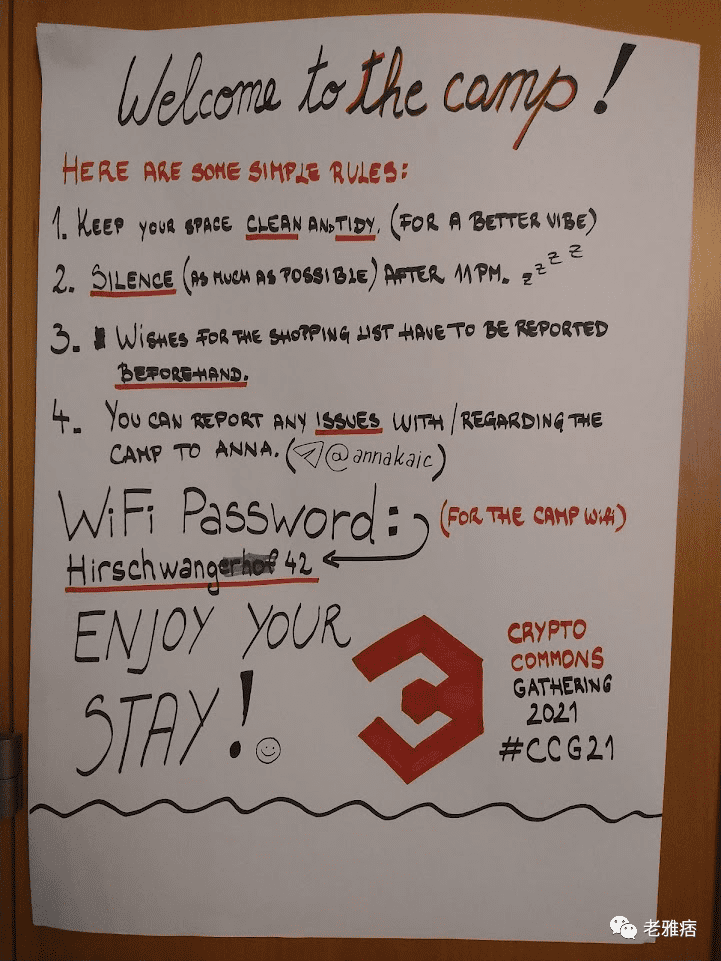 Welcome to the camp!
HERE ARE SOME SIMPLE RULES:
1. KEEP YOUR SPACE CLEAN AND TIDY. (FOR A BETTER VIBE)
2. SILENCE (AS MUCH AS POSSIBLE) AFTER 11PM. z z z z
3. WISHES FOR THE SHOPPING LIST HAVE TO BE REPORTED
BEFOREHAND.
4. YOU CAN REPORT ANY ISSUES WITH/REGARDING THE
CAMP TO ANNA. (@annakaic)
WiFi PASSWORD:
(FOR THE CAMP WiFi)
Hirschwangerhof 42
ENJOY YOUR
STAY!
CRYPTO
COMMONS
GATHERING
2021
#CCG21
老雅痞